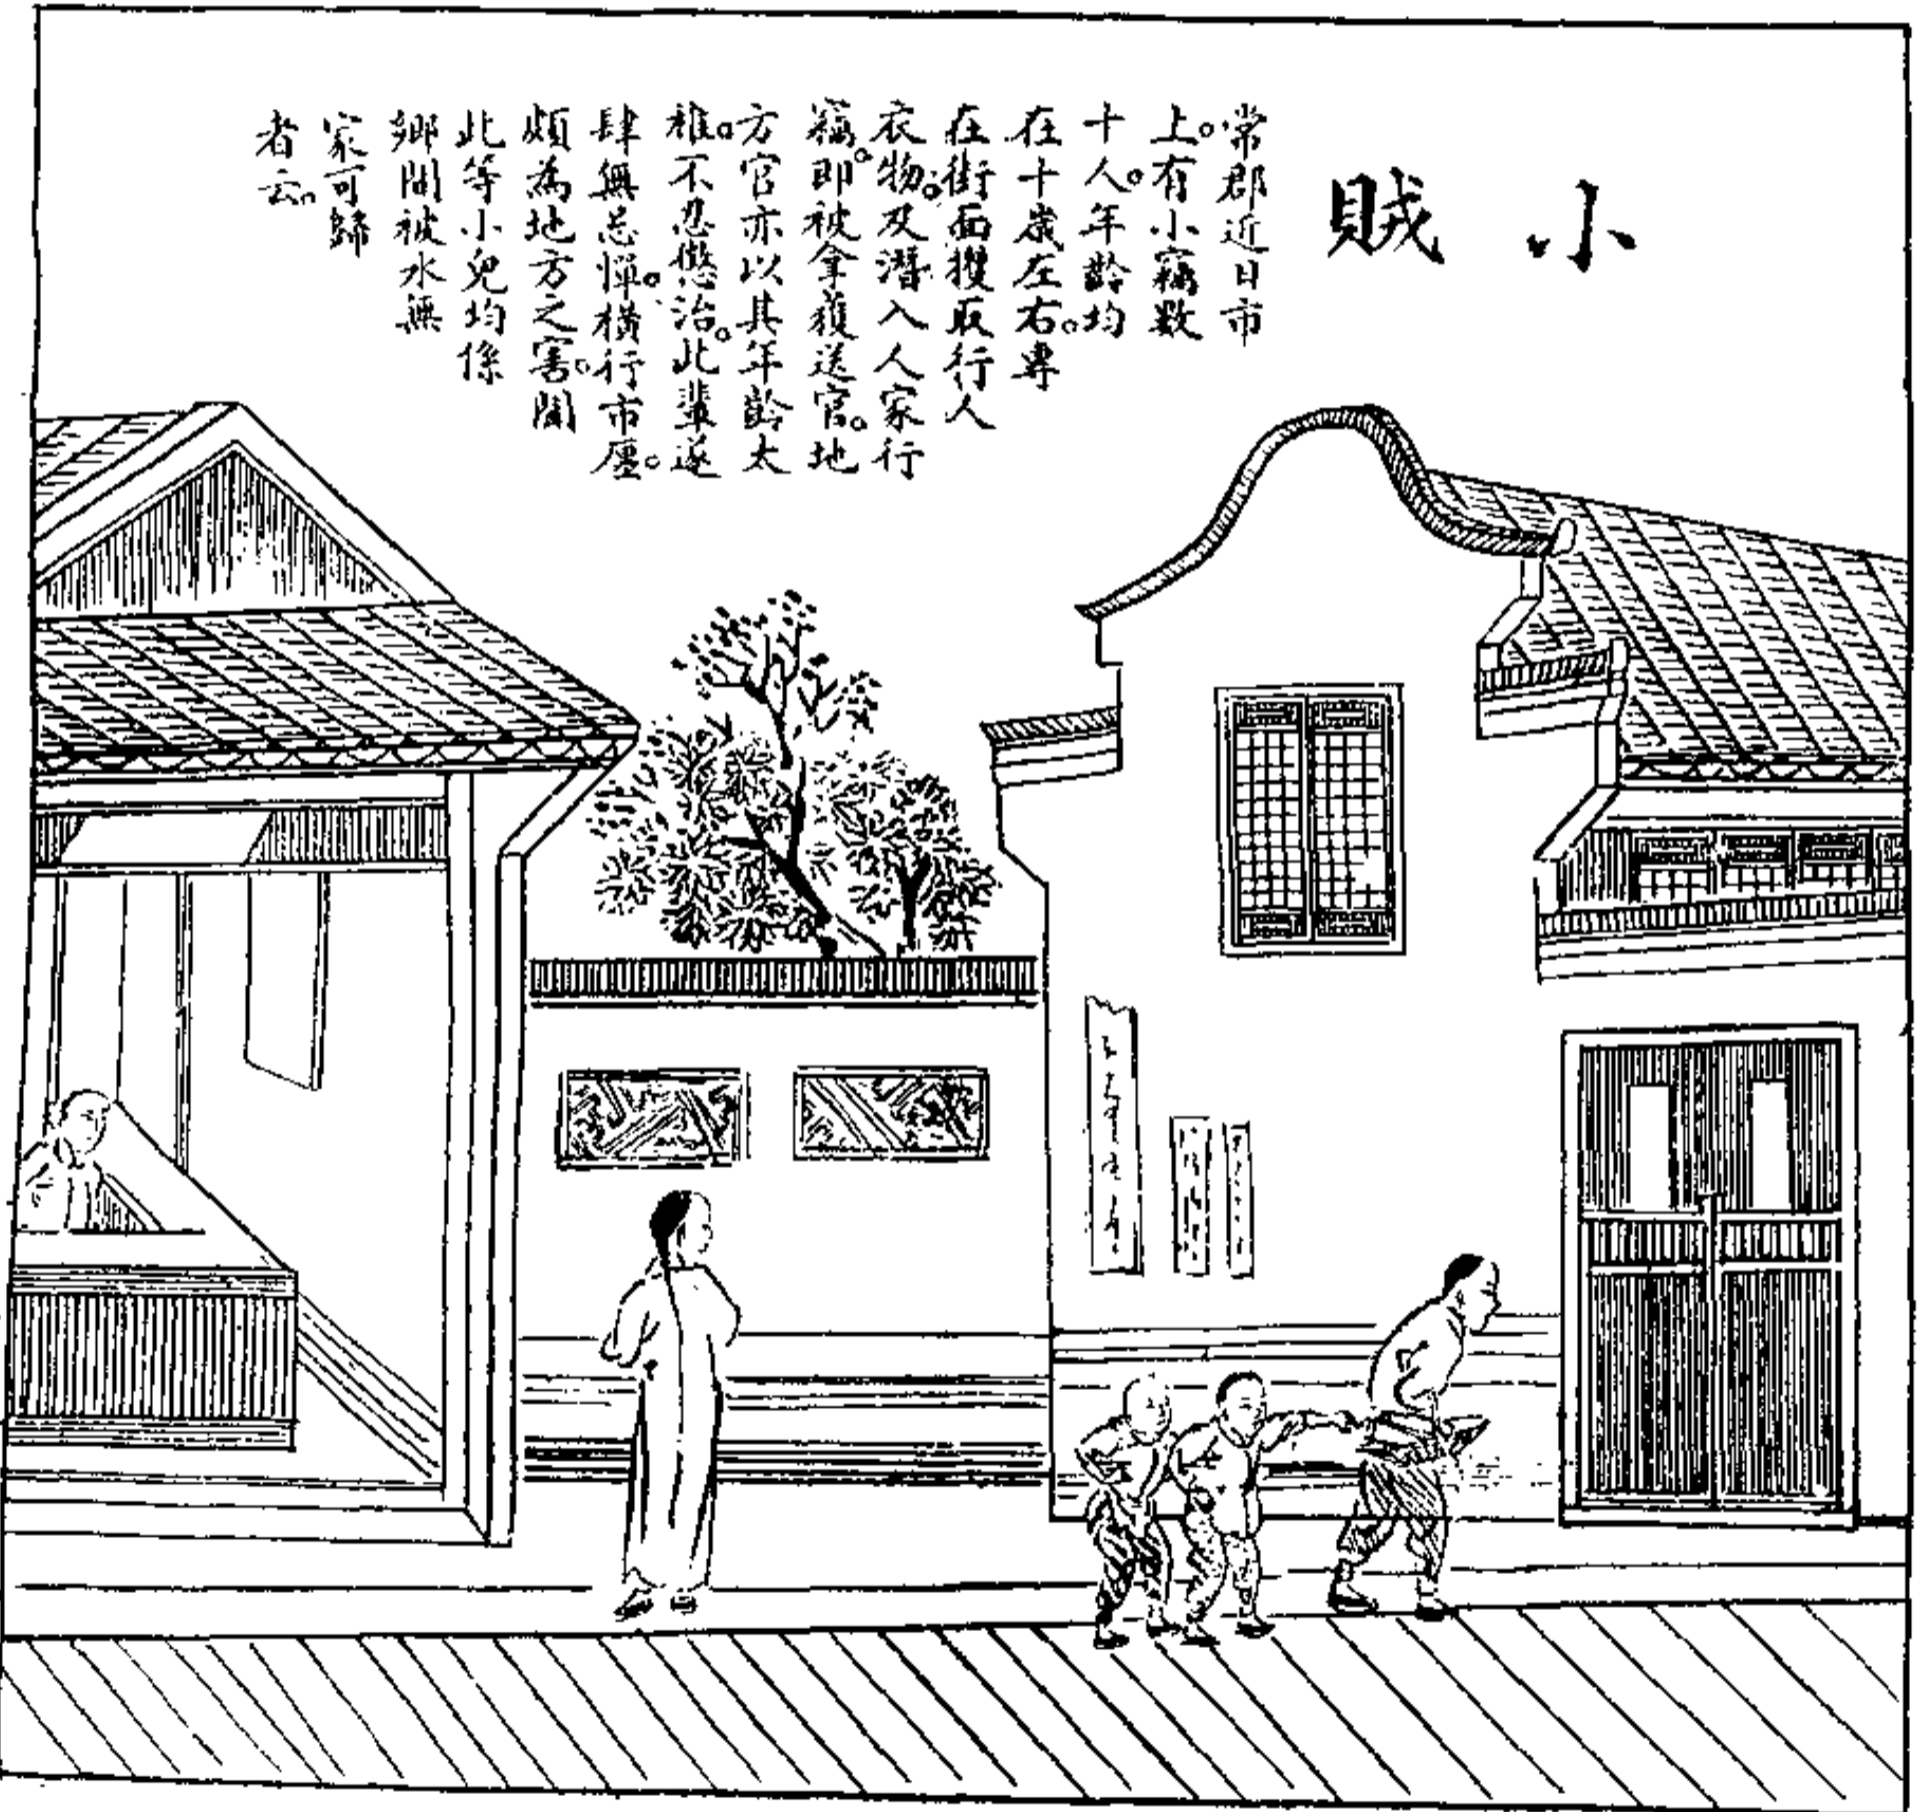 小賊
常郡近日市
上。有小竊數
十人。年齡均
在十歲左右。專
在街面攫取行人
衣物。及潛入人家行
竊。即被拿獲送官。地
方官亦以其年齡太
稚。不忍懲治。此輩遂
肆無忌憚。橫行市廛。
頗為地方之害。聞
此等小兒均係
鄉間被水無
家可歸
者云。